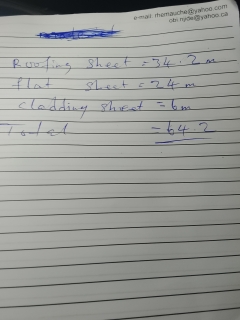 e-mail: themauche@yahoo.com
obi.njide@yahoo.ca
Roofing sheet = 34.2 m
flat sheet = 24 m
cladding sheet = 6m
Total = 64.2